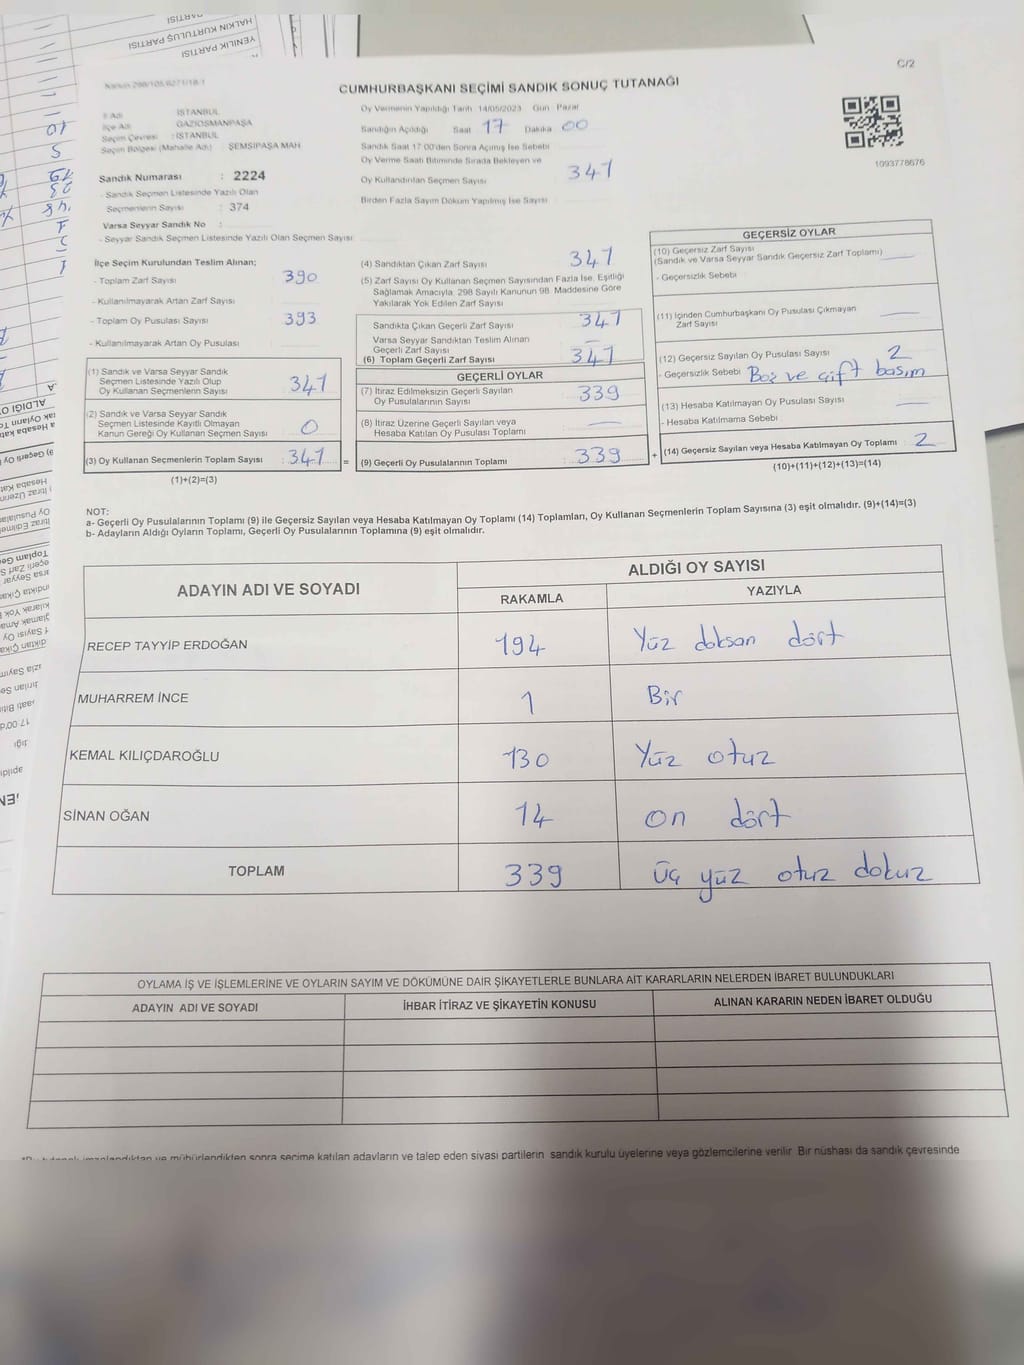 HALKIN KURTULUŞ PARTİSİ
YENİLİK PARTİSİ
C/2
CUMHURBAŞKANI SEÇİMİ SANDIK SONUÇ TUTANAĞI
İl Adı : İSTANBUL
İlçe Adı : GAZİOSMANPAŞA
Seçim Çevresi : İSTANBUL
Seçim Bölgesi (Mahalle Adı) : ŞEMSİPAŞA MAH
Sandık Numarası : 2224
- Sandık Seçmen Listesinde Yazılı Olan
Seçmenlerin Sayısı : 374
Varsa Seyyar Sandık No :
- Seyyar Sandık Seçmen Listesinde Yazılı Olan Seçmen Sayısı
Oy Vermenin Yapıldığı Tarih 14/05/2023 Gün Pazar
Sandığın Açıldığı Saat 17 Dakika 00
Sandık Saat 17:00'den Sonra Açımış İse Sebebi
Oy Verme Saati Bitiminde Sırada Bekleyen ve
Oy Kullandırılan Seçmen Sayısı 347
Birden Fazla Sayım Döküm Yapılmış İse Sayısı
1093778676
İlçe Seçim Kurulundan Teslim Alınan;
- Toplam Zarf Sayısı 390
- Kullanılmayarak Artan Zarf Sayısı
- Toplam Oy Pusulası Sayısı 393
- Kullanılmayarak Artan Oy Pusulası
(1) Sandık ve Varsa Seyyar Sandık
Seçmen Listesinde Yazılı Olup
Oy Kullanan Seçmenlerin Sayısı 341
(2) Sandık ve Varsa Seyyar Sandık
Seçmen Listesinde Kayıtlı Olmayan
Kanun Gereği Oy Kullanan Seçmen Sayısı 0
(3) Oy Kullanan Seçmenlerin Toplam Sayısı : 341 =
(1)+(2)=(3)
(4) Sandıktan Çıkan Zarf Sayısı 341
(5) Zarf Sayısı Oy Kullanan Seçmen Sayısından Fazla İse, Eşitliği
Sağlamak Amacıyla, 298 Sayılı Kanunun 98. Maddesine Göre
Yakılarak Yok Edilen Zarf Sayısı
Sandıkta Çıkan Geçerli Zarf Sayısı 341
Varsa Seyyar Sandıktan Teslim Alınan
Geçerli Zarf Sayısı —
(6) Toplam Geçerli Zarf Sayısı 341
GEÇERLİ OYLAR
(7) İtiraz Edilmeksizin Geçerli Sayılan
Oy Pusulalarının Sayısı 339
(8) İtiraz Üzerine Geçerli Sayılan veya
Hesaba Katılan Oy Pusulası Toplamı —
(9) Geçerli Oy Pusulalarının Toplamı : 339 +
GEÇERSİZ OYLAR
(10) Geçersiz Zarf Sayısı
(Sandık ve Varsa Seyyar Sandık Geçersiz Zarf Toplamı) —
- Geçersizlik Sebebi
(11) İçinden Cumhurbaşkanı Oy Pusulası Çıkmayan
Zarf Sayısı —
(12) Geçersiz Sayılan Oy Pusulası Sayısı 2
- Geçersizlik Sebebi Boş ve çift basım
(13) Hesaba Katılmayan Oy Pusulası Sayısı —
- Hesaba Katılmama Sebebi
(14) Geçersiz Sayılan veya Hesaba Katılmayan Oy Toplamı 2
(10)+(11)+(12)+(13)=(14)
NOT:
a- Geçerli Oy Pusulalarının Toplamı (9) ile Geçersiz Sayılan veya Hesaba Katılmayan Oy Toplamı (14) Toplamları, Oy Kullanan Seçmenlerin Toplam Sayısına (3) eşit olmalıdır. (9)+(14)=(3)
b- Adayların Aldığı Oyların Toplamı, Geçerli Oy Pusulalarının Toplamına (9) eşit olmalıdır.
ADAYIN ADI VE SOYADI ALDIĞI OY SAYISI
RAKAMLA YAZIYLA
RECEP TAYYİP ERDOĞAN 194 Yüz doksan dört
MUHARREM İNCE 1 Bir
KEMAL KILIÇDAROĞLU 130 Yüz otuz
SİNAN OĞAN 14 on dört
TOPLAM 339 üç yüz otuz dokuz
OYLAMA İŞ VE İŞLEMLERİNE VE OYLARIN SAYIM VE DÖKÜMÜNE DAİR ŞİKAYETLERLE BUNLARA AİT KARARLARIN NELERDEN İBARET BULUNDUKLARI
ADAYIN ADI VE SOYADI İHBAR İTİRAZ VE ŞİKAYETİN KONUSU ALINAN KARARIN NEDEN İBARET OLDUĞU
imzalandıktan ve mühürlendikten sonra seçime katılan adayların ve talep eden siyasi partilerin sandık kurulu üyelerine veya gözlemcilerine verilir Bir nüshası da sandık çevresinde